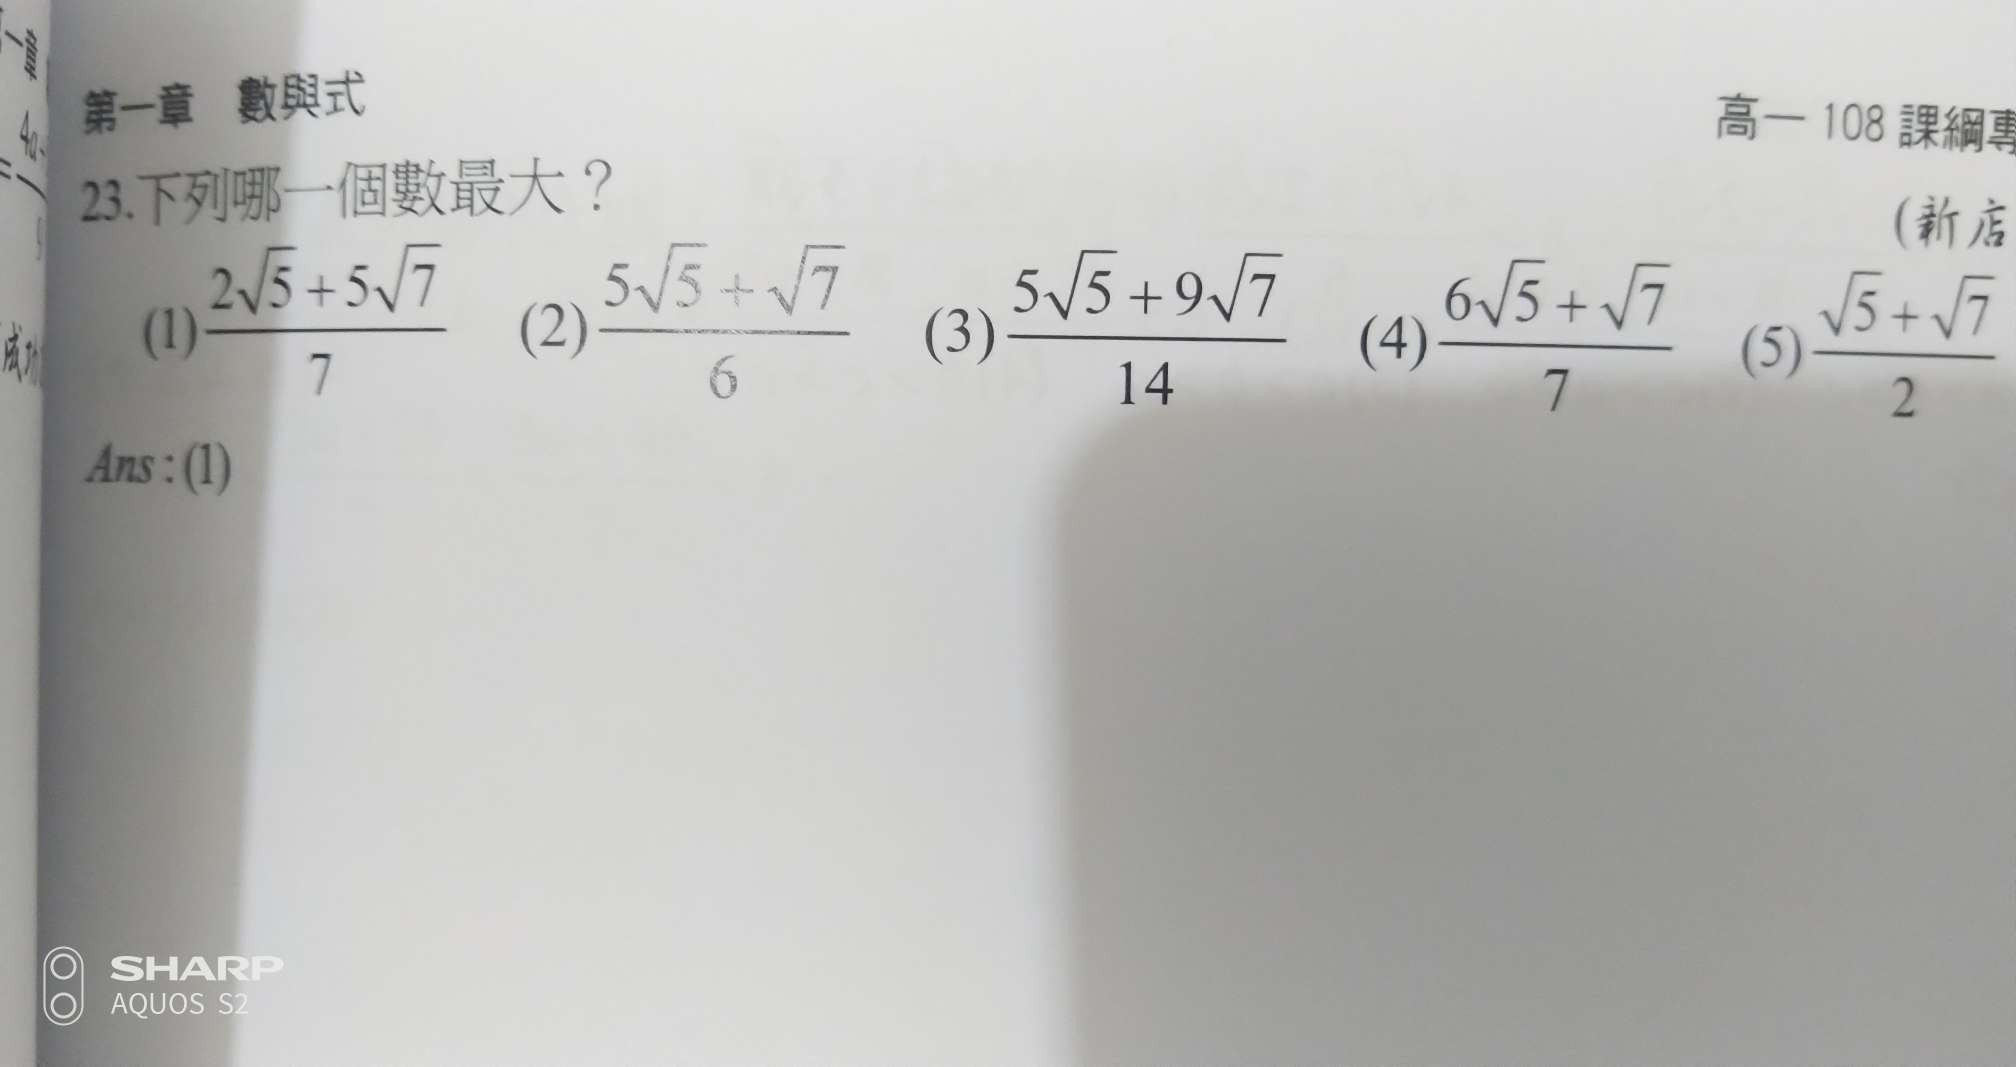 第一章 數與式
高一 108 課綱專
23.下列哪一個數最大？
(新店
(1) (2√5+5√7)/7 (2) (5√5+√7)/6 (3) (5√5+9√7)/14 (4) (6√5+√7)/7 (5) (√5+√7)/2
Ans:(1)
SHARP
AQUOS S2